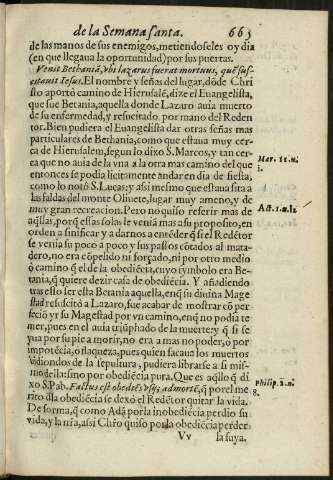 de la Semana santa. 665
de las manos de sus enemigos, metiendoseles oy dia
(en que llegaua la oportunidad) por sus puertas.
Venit Bethaniā, vbi lazarus fuerat mortuus, quē sus-
citauit Iesus. El nombre y señas del lugar, dōde Chri
sto aportò camino de Hierusalē, dize el Euangelista,
que fue Betania, aquella donde Lazaro auia muerto
de su enfermedad, y resucitado por mano del Reden
tor. Bien pudiera el Euangelista dar otras señas mas
particulares de Bethania, como que estaua muy cer-
ca de Hierusalem, segun lo dixo S. Marcos, y tan cer-
Mar. 11. n.
1.
ca que no auia de la vna a la otra mas camino del que
entonces se podia licitamente andar en dia de fiesta,
como lo notò S. Lucas: y asi mismo que estaua sita a
las faldas del monte Oliuete, lugar muy ameno, y de
Act. 1. n. 12
muy gran recreacion. Pero no quiso referir mas de
aqllas, porq̃ estas solas le veniā mas a su proposito, en
orden a sinificar y a darnos a entēder q̃ si el Redētor
se venia su poco a poco y sus passos cōtados al mata-
dero, no era cōpelido ni forçado, ni por otro medio
ò camino q̃ el de la obediēcia, cuyo symbolo era Be-
tania, q̃ quiere dezir casa de obediēcia. Y añadiendo
tras esto ser esta Betania aquella, enq̃ su diuina Mage
stad resuscitò a Lazaro, fue acabar de mostrar cō per-
feciō q̃ si su Magestad por vn camino, enq̃ no podia te
mer, pues en el auia triūphado de la muerte: y q̃ si se
yua por su pie a morir, no era a mas no poder, ò por
impotēcia, ò flaqueza, pues quien sacaua los muertos
hidiondos de la sepultura, pudiera librarse a si mis-
mo de la: sino por obediēcia pura. Que es aqllo q̃ di
xo S. Pab. Factus est obediēs vsq; ad mortē, q̃ por el me
Philip. 2. n.
8.
rito dla obediēcia se dexò el Redētor quitar la vida.
De forma, q̃ como Adā por la inobediēcia perdio su
vida, y la nr̃a, asi Chr̃o quiso por la obediēcia perder
Vv la suya.